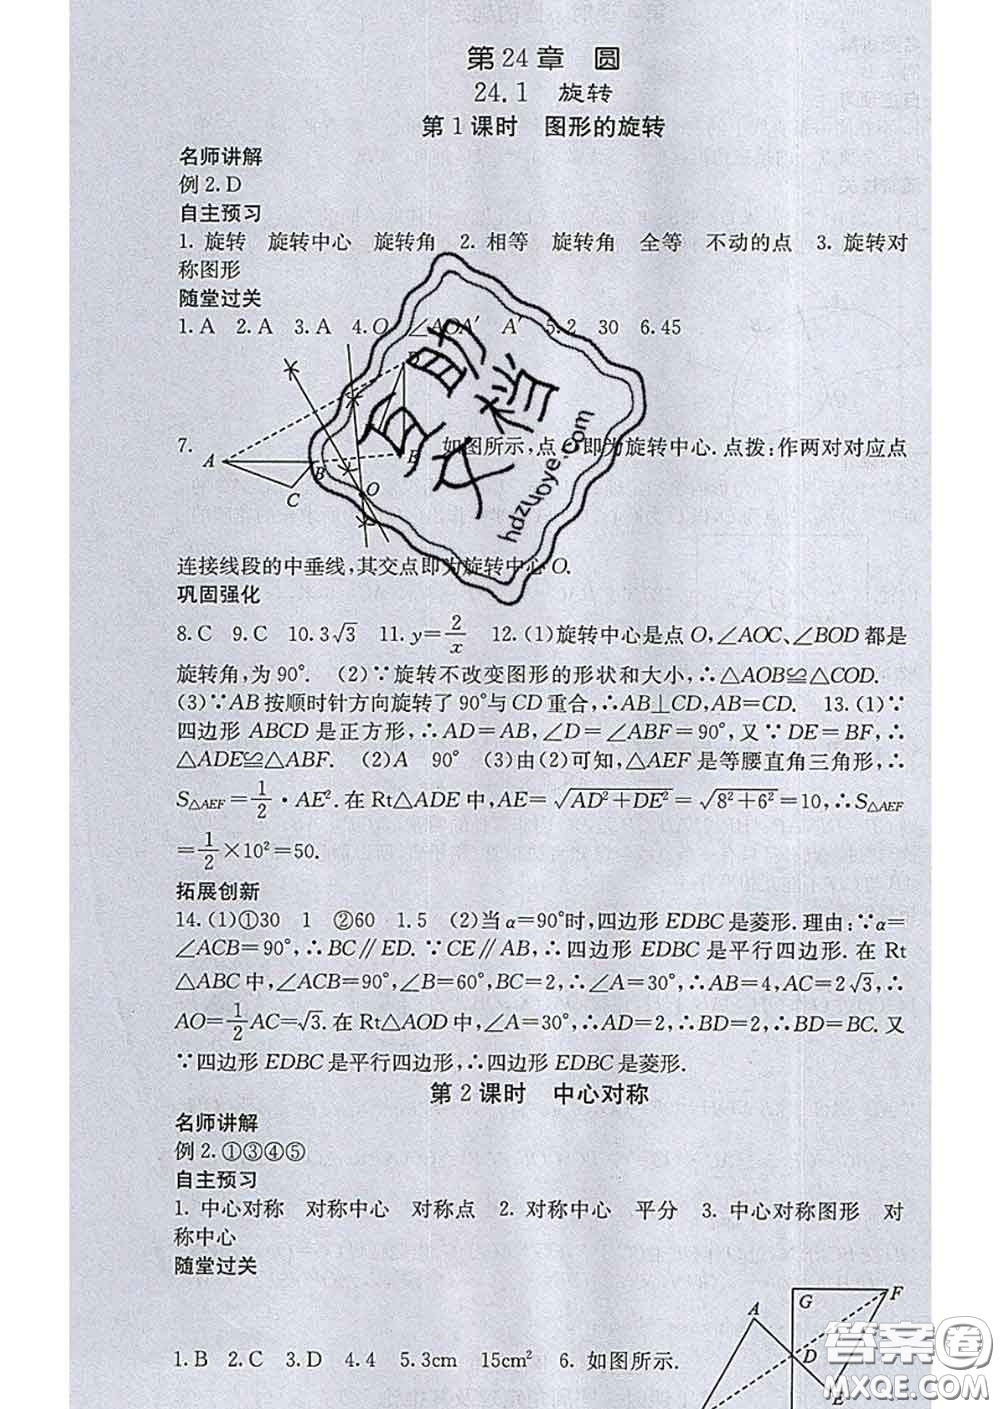 第24章 圆
24.1 旋转
第1课时 图形的旋转
名师讲解
例2.D
自主预习
1. 旋转 旋转中心 旋转角 2. 相等 旋转角 全等 不动的点 3. 旋转对
称图形
随堂过关
1.A 2.A 3.A 4.O ∠AOA′ A′ 5.2 30 6.45
D
7.
A
B
E
C
O
如图所示,点O即为旋转中心.点拨:作两对对应点
连接线段的中垂线,其交点即为旋转中心O.
巩固强化
8.C 9.C 10.3√3 11.y=2/x 12.(1)旋转中心是点O,∠AOC、∠BOD都是
旋转角,为90°. (2)∵旋转不改变图形的形状和大小,∴△AOB≌△COD.
(3)∵AB按顺时针方向旋转了90°与CD重合,∴AB⊥CD,AB=CD. 13.(1)∵
四边形ABCD是正方形,∴AD=AB,∠D=∠ABF=90°,又∵DE=BF,∴
△ADE≌△ABF. (2)A 90° (3)由(2)可知,△AEF是等腰直角三角形,∴
S△AEF=1/2·AE².在Rt△ADE中,AE=√(AD²+DE²)=√(8²+6²)=10,∴S△AEF
=1/2×10²=50.
拓展创新
14.(1)①30 1 ②60 1.5 (2)当α=90°时,四边形EDBC是菱形.理由:∵α=
∠ACB=90°,∴BC∥ED.∵CE∥AB,∴四边形EDBC是平行四边形.在Rt
△ABC中,∠ACB=90°,∠B=60°,BC=2,∴∠A=30°,∴AB=4,AC=2√3,∴
AO=1/2AC=√3.在Rt△AOD中,∠A=30°,∴AD=2,∴BD=2,∴BD=BC.又
∵四边形EDBC是平行四边形,∴四边形EDBC是菱形.
第2课时 中心对称
名师讲解
例2.①③④⑤
自主预习
1. 中心对称 对称中心 对称点 2. 对称中心 平分 3. 中心对称图形 对
称中心
随堂过关
G
F
A
D
E
1.B 2.C 3.D 4.4 5.3cm 15cm² 6. 如图所示.
互助文档
hdzuoye.com
答案圈
MXQE.COM